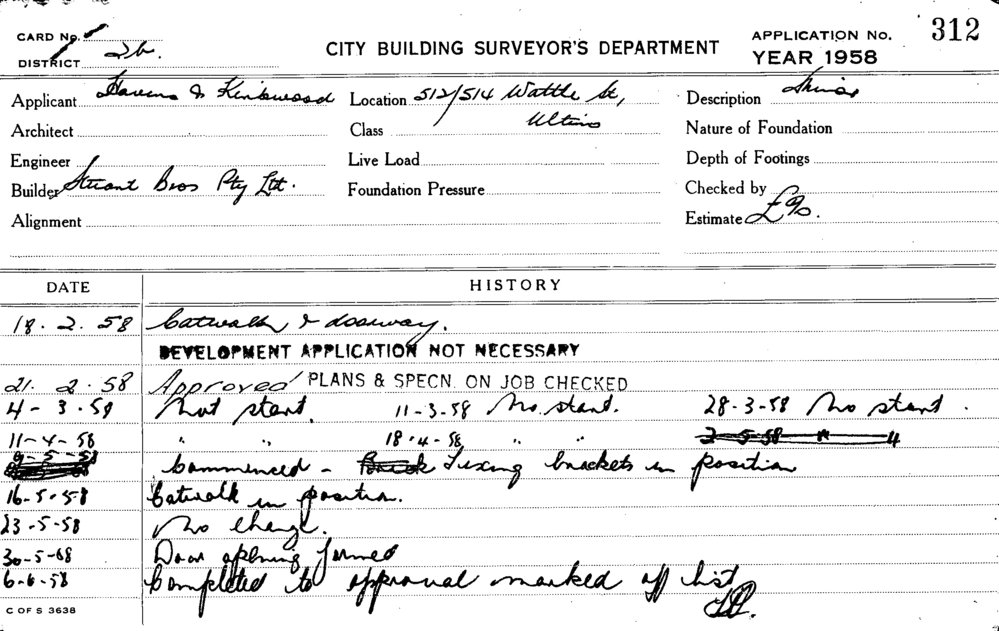 CARD No.
DISTRICT 26.
CITY BUILDING SURVEYOR'S DEPARTMENT
APPLICATION No. 312
YEAR 1958
Applicant & Kirkwood
Location 512/514 Wattle St,
Description Minor
Architect
Class Ultimo
Nature of Foundation
Engineer
Live Load
Depth of Footings
Builder Stuart Bros Pty Ltd.
Foundation Pressure
Checked by
Alignment
Estimate
DATE
HISTORY
18. 2. 58 Catwalk & doorway.
DEVELOPMENT APPLICATION NOT NECESSARY
21. 2. 58 Approved PLANS & SPECN. ON JOB CHECKED
4 - 3. 58 Not start. 11-3-58 No start. 28-3-58 No start.
11-4-58 " " 18-4-58 " "
9-5-58 Commenced - Fixing brackets in position
16-5-58 Catwalk in position.
23-5-58 No change.
30-5-58 Door opening formed
6-6-58 Completed to approval marked off list
C OF S 3638